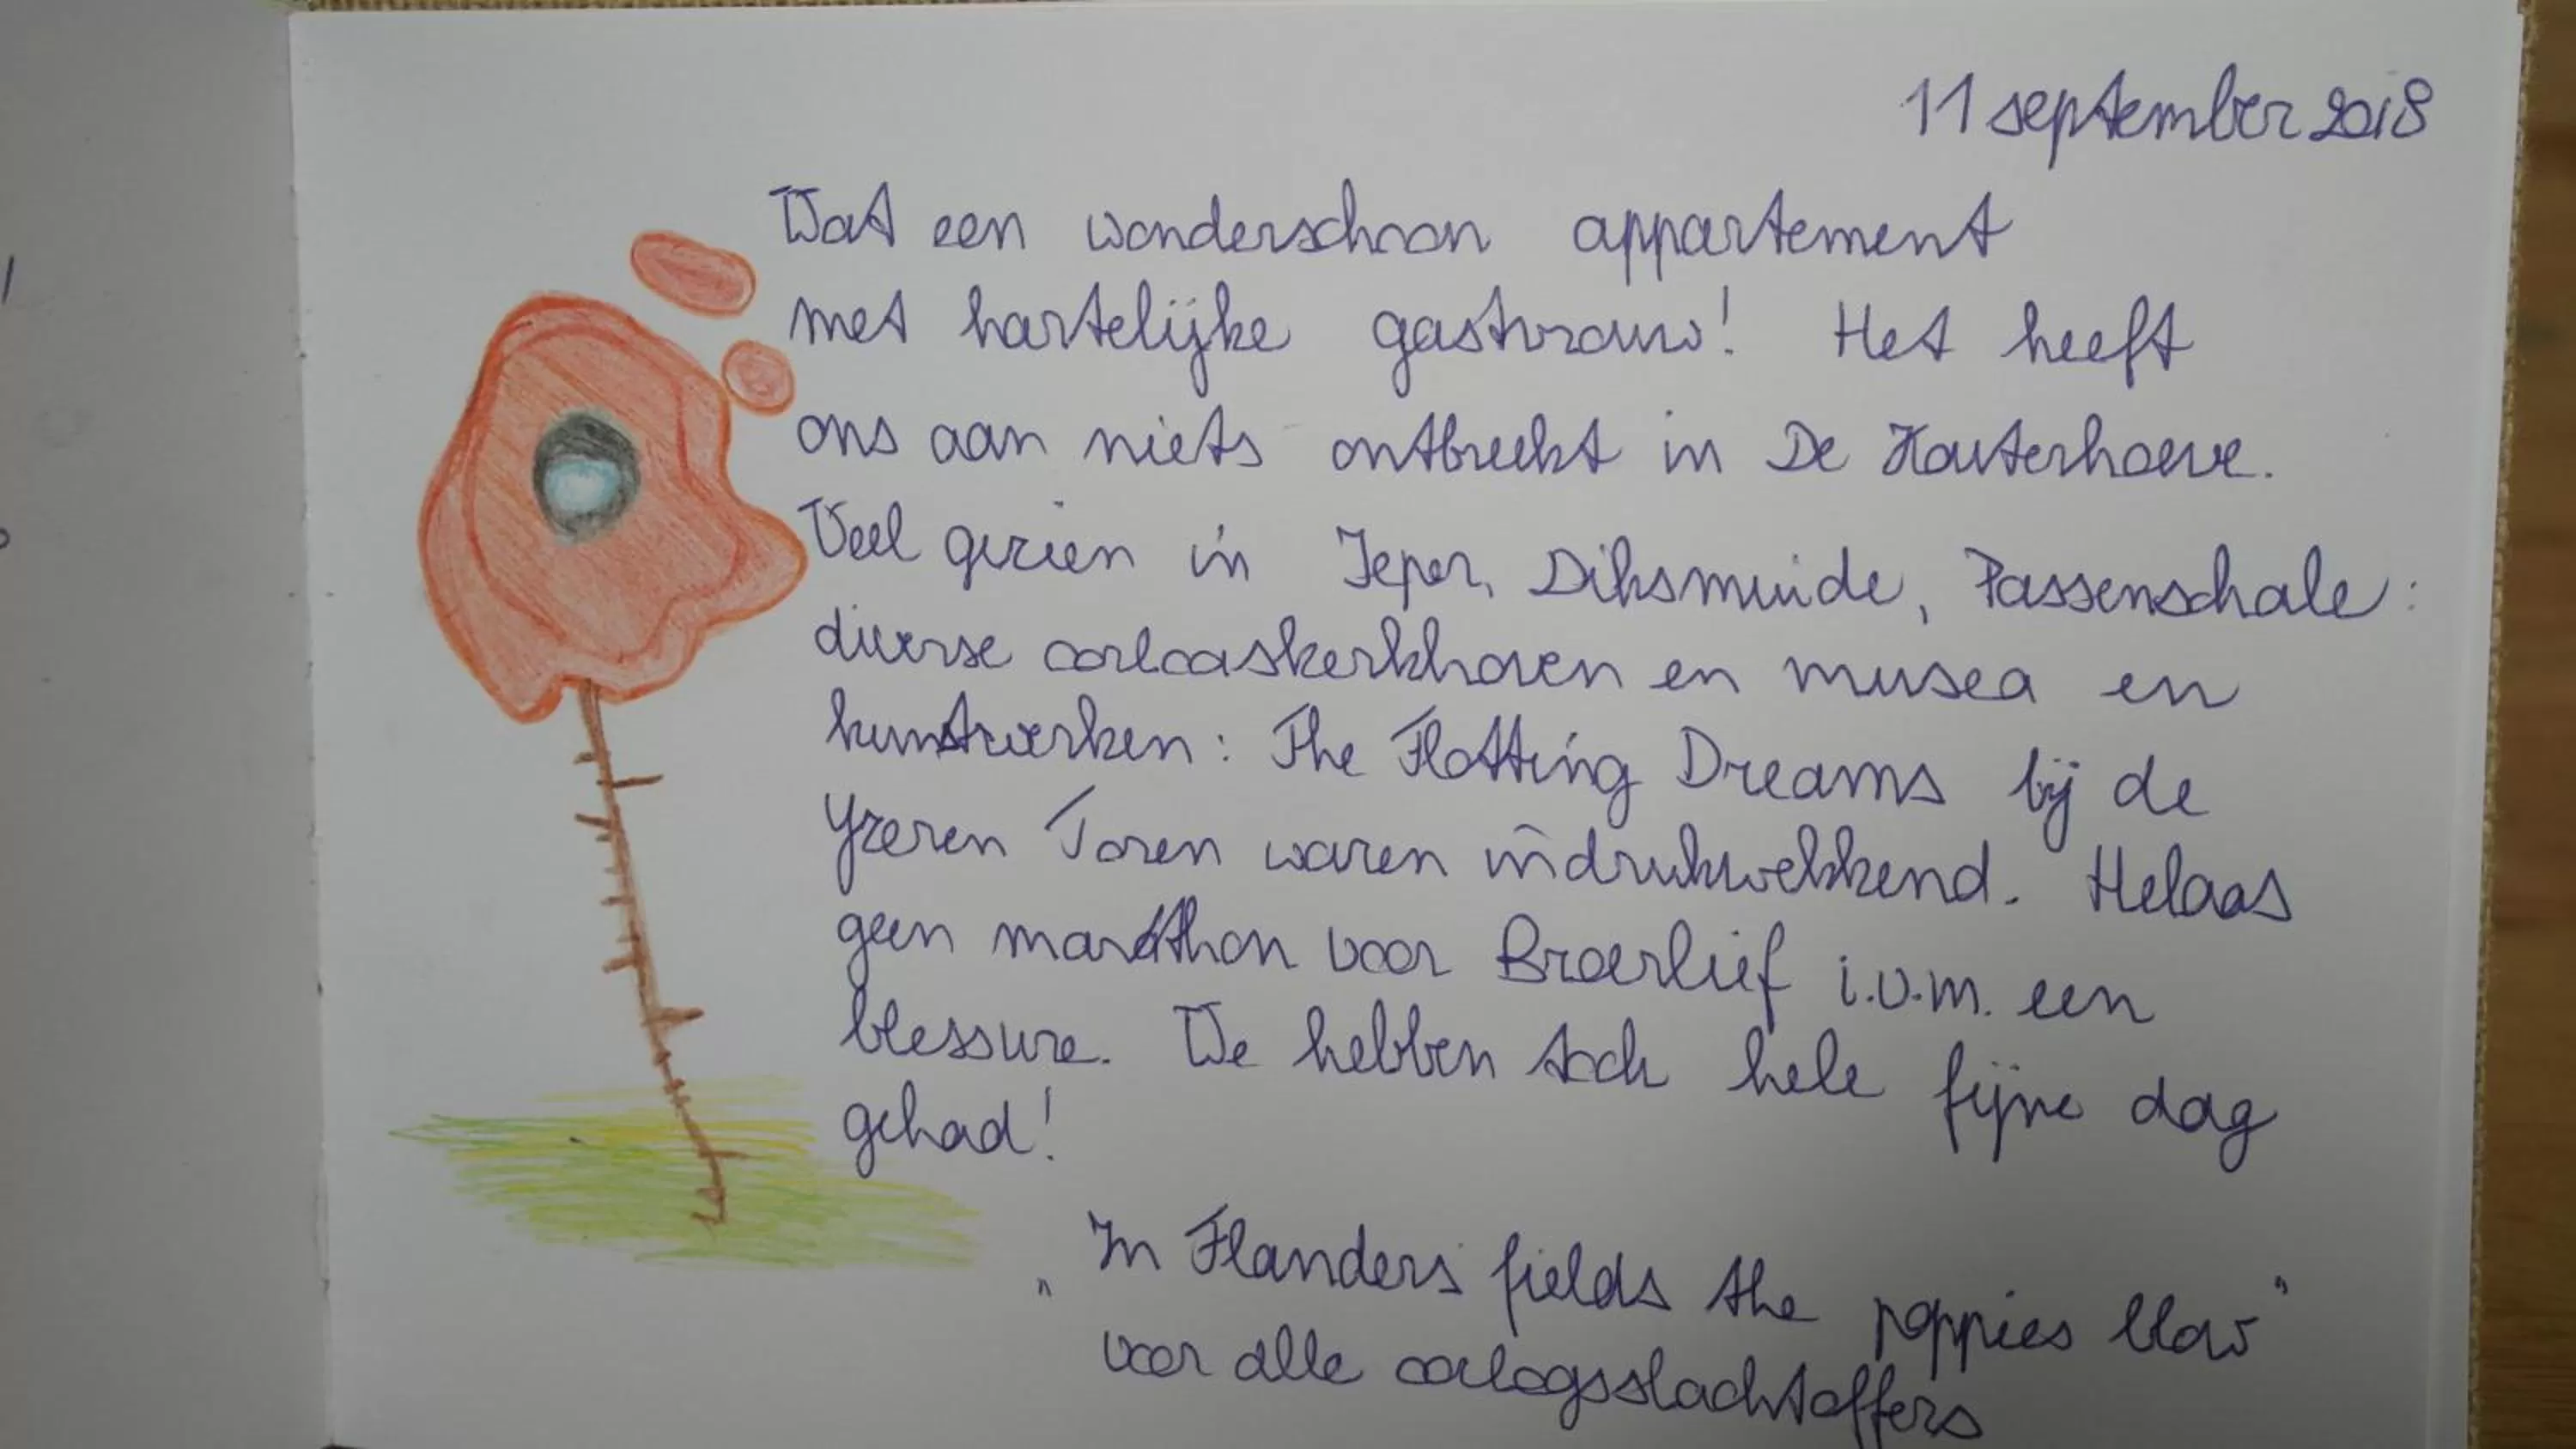 11 september 2018
Wat een wonderschoon appartement
met hartelijke gastvrouw! Het heeft
ons aan niets ontbreekt in De Kouterhoeve.
Veel gezien in Ieper, Diksmuide, Passenschale:
diverse oorlogskerkhoven en musea en
kunstwerken: The Flotting Dreams bij de
Yzeren Toren waren indrukwekkend. Helaas
geen marathon voor Broerlief i.v.m. een
blessure. We hebben toch hele fijne dag
gehad!
"In Flanders fields the poppies blow"
voor alle oorlogsslachtoffers